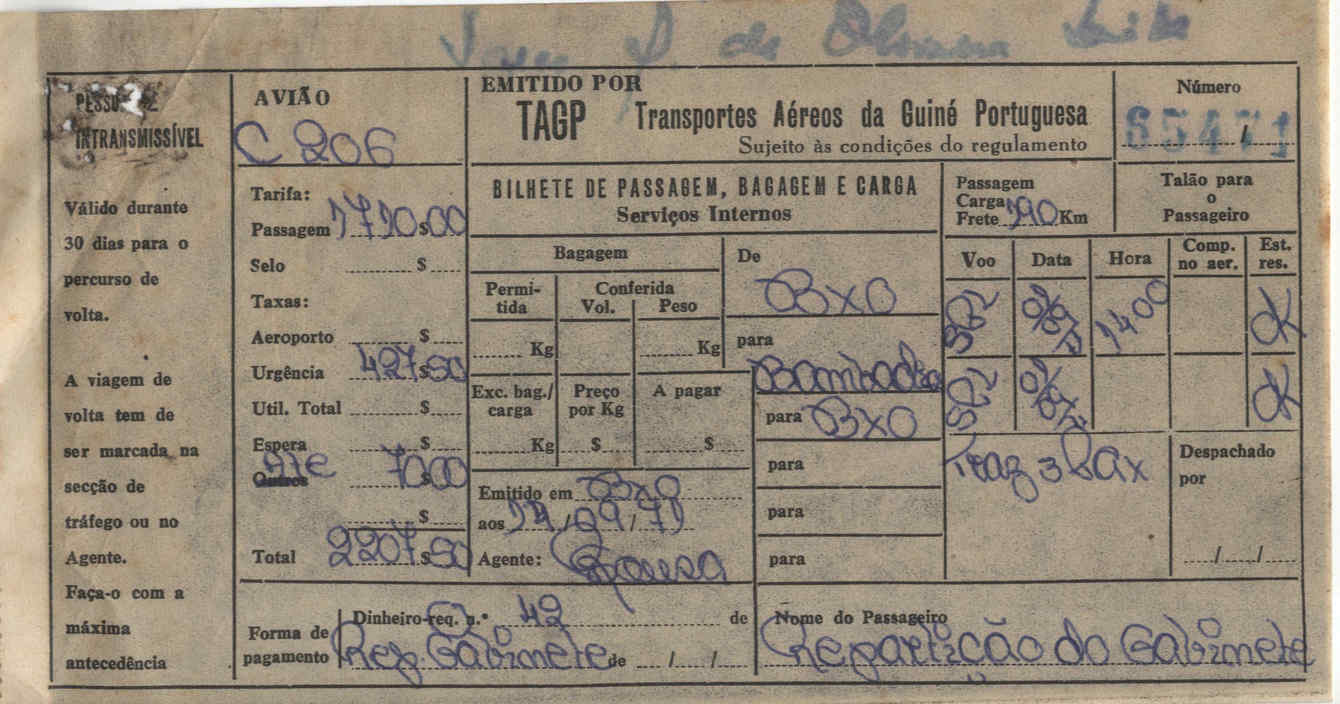 de Oliveira Leite
PESSOAL E
INTRANSMISSÍVEL
Válido durante
30 dias para o
percurso de
volta.
A viagem de
volta tem de
ser marcada na
secção de
tráfego ou no
Agente.
Faça-o com a
máxima
antecedência
AVIÃO
C 206
Tarifa:
Passagem 1710$00
Selo $
Taxas:
Aeroporto $
Urgência 427$50
Util. Total $
Espera $
Outros Ate 70$00
$
Total 2207$50
EMITIDO POR
TAGP Transportes Aéreos da Guiné Portuguesa
Sujeito às condições do regulamento
Número
65471
BILHETE DE PASSAGEM, BAGAGEM E CARGA
Serviços Internos
Passagem
Carga
Frete 190 Km
Talão para
o
Passageiro
Bagagem
Permi-
tida
Conferida
Vol. Peso
Kg Kg
Exc. bag./
carga
Preço
por Kg
A pagar
Kg $ $
Emitido em BXO
aos 17/09/71
Agente: Sousa
De
BXO
para
Bambadinca
para BXO
para
para
para
Voo Data Hora Comp.
no aer. Est.
res.
1400 OK
OK
Traz 3 Pax
Despachado
por
/ /
Forma de
pagamento
Dinheiro-req. n.º 42 de
Rep. Gabinete de / /
Nome do Passageiro
Repartição do Gabinete